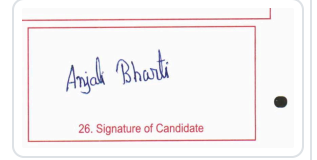 Anjali Bharti
26. Signature of Candidate